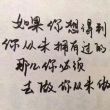 如果你想得到
你从未拥有过的
那么你必须
去做你从未做